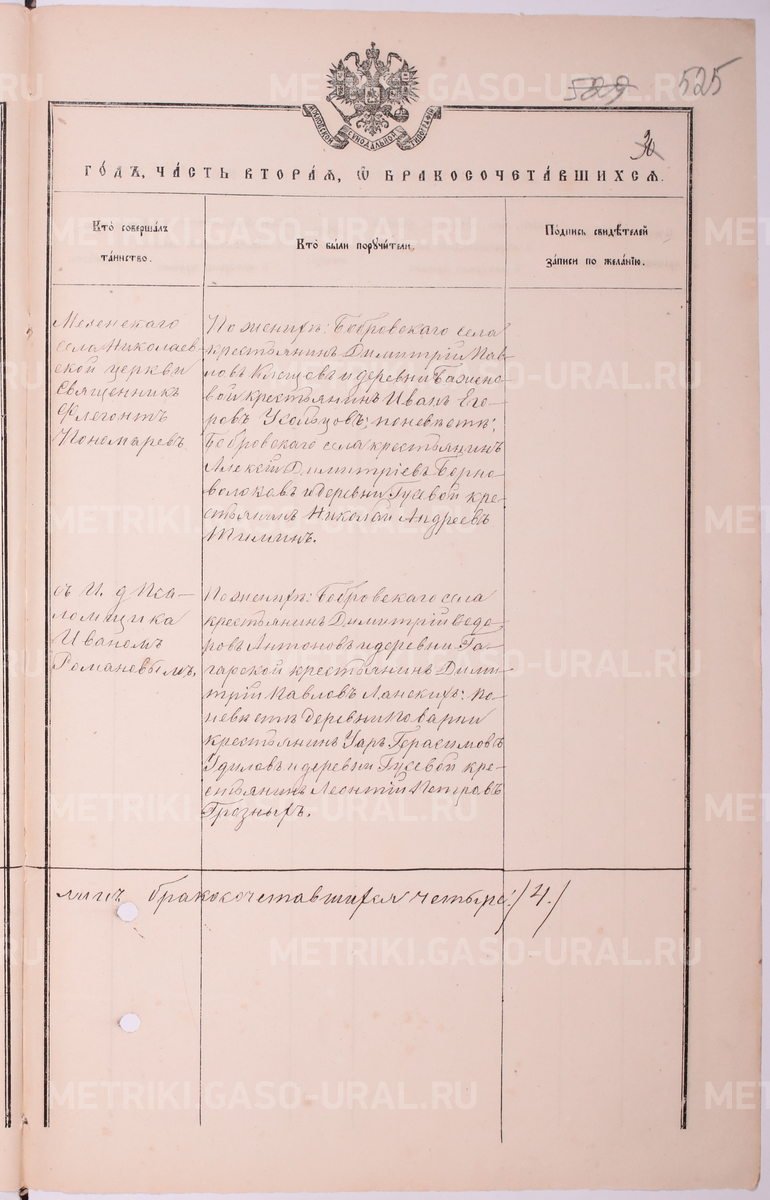 529 525
МОСКОВСКОЙ СѴНОДАЛЬНОЙ ТИПОГРАФІИ
30
ГО́ДЪ, ЧА́СТЬ ВТОРА́Я, Ѽ БРАКОСОЧЕТА́ВШИХСЯ.
Кто̀ соверша́лъ
та́инство.
Кто̀ бы́ли порꙋчи́тели.
По́дпись свидѣ́телей
за́писи по жела́нїю.
села Николаев-
ской церкви
Священникъ
Флегонтъ
Пономаревъ
По женихѣ: Бобровскаго села
крестьянинъ Димитрій Пав-
ловъ Клещовъ и деревни Бажено-
вой крестьянинъ Иванъ Его-
ровъ Усольцовъ; по невѣстѣ:
Бобровскаго села крестьянинъ
Алексѣй Димитріевъ Черно-
волоковъ и деревни Гусевой кре-
стьянинъ Николай Андреевъ
съ И. д Пса-
ломщика
Иваномъ
Романовымъ,
По женихѣ: Бобровскаго села
крестьянинъ Димитрій Ѳедо-
ровъ Антоновъ и деревни Га-
гарской крестьянинъ Дими-
трій Павловъ Ланскихъ: по
невѣстѣ деревни Поварни
крестьянинъ Уаръ Герасимовъ
Удиловъ и деревни Гусевой кре-
стьянинъ Леонтій Петровъ
Грозныхъ.
лицъ бракосочетавшихся четыре /4./
METRIKI.GASO-URAL.RU